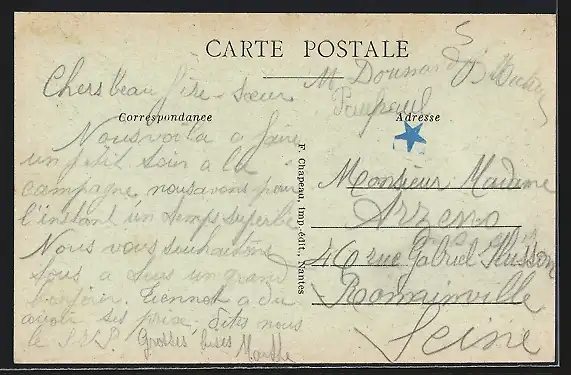 CARTE POSTALE
M Doussard
Chers beau frère - sœur
Correspondance
Adresse
Nous voila a faire
un petit soin a la
campagne nous avons pour
l'instant un temps superbe
Nous vous souhaitons
tous a deux un grand
bonjour. Tiennot a du
avoir ses prix, dites nous
le S.V.P. Grosses bises
F. Chapeau, imp. édit., Nantes
Monsieur Madame
Arzens
46 rue Gabriel Husson
Romainville
Seine